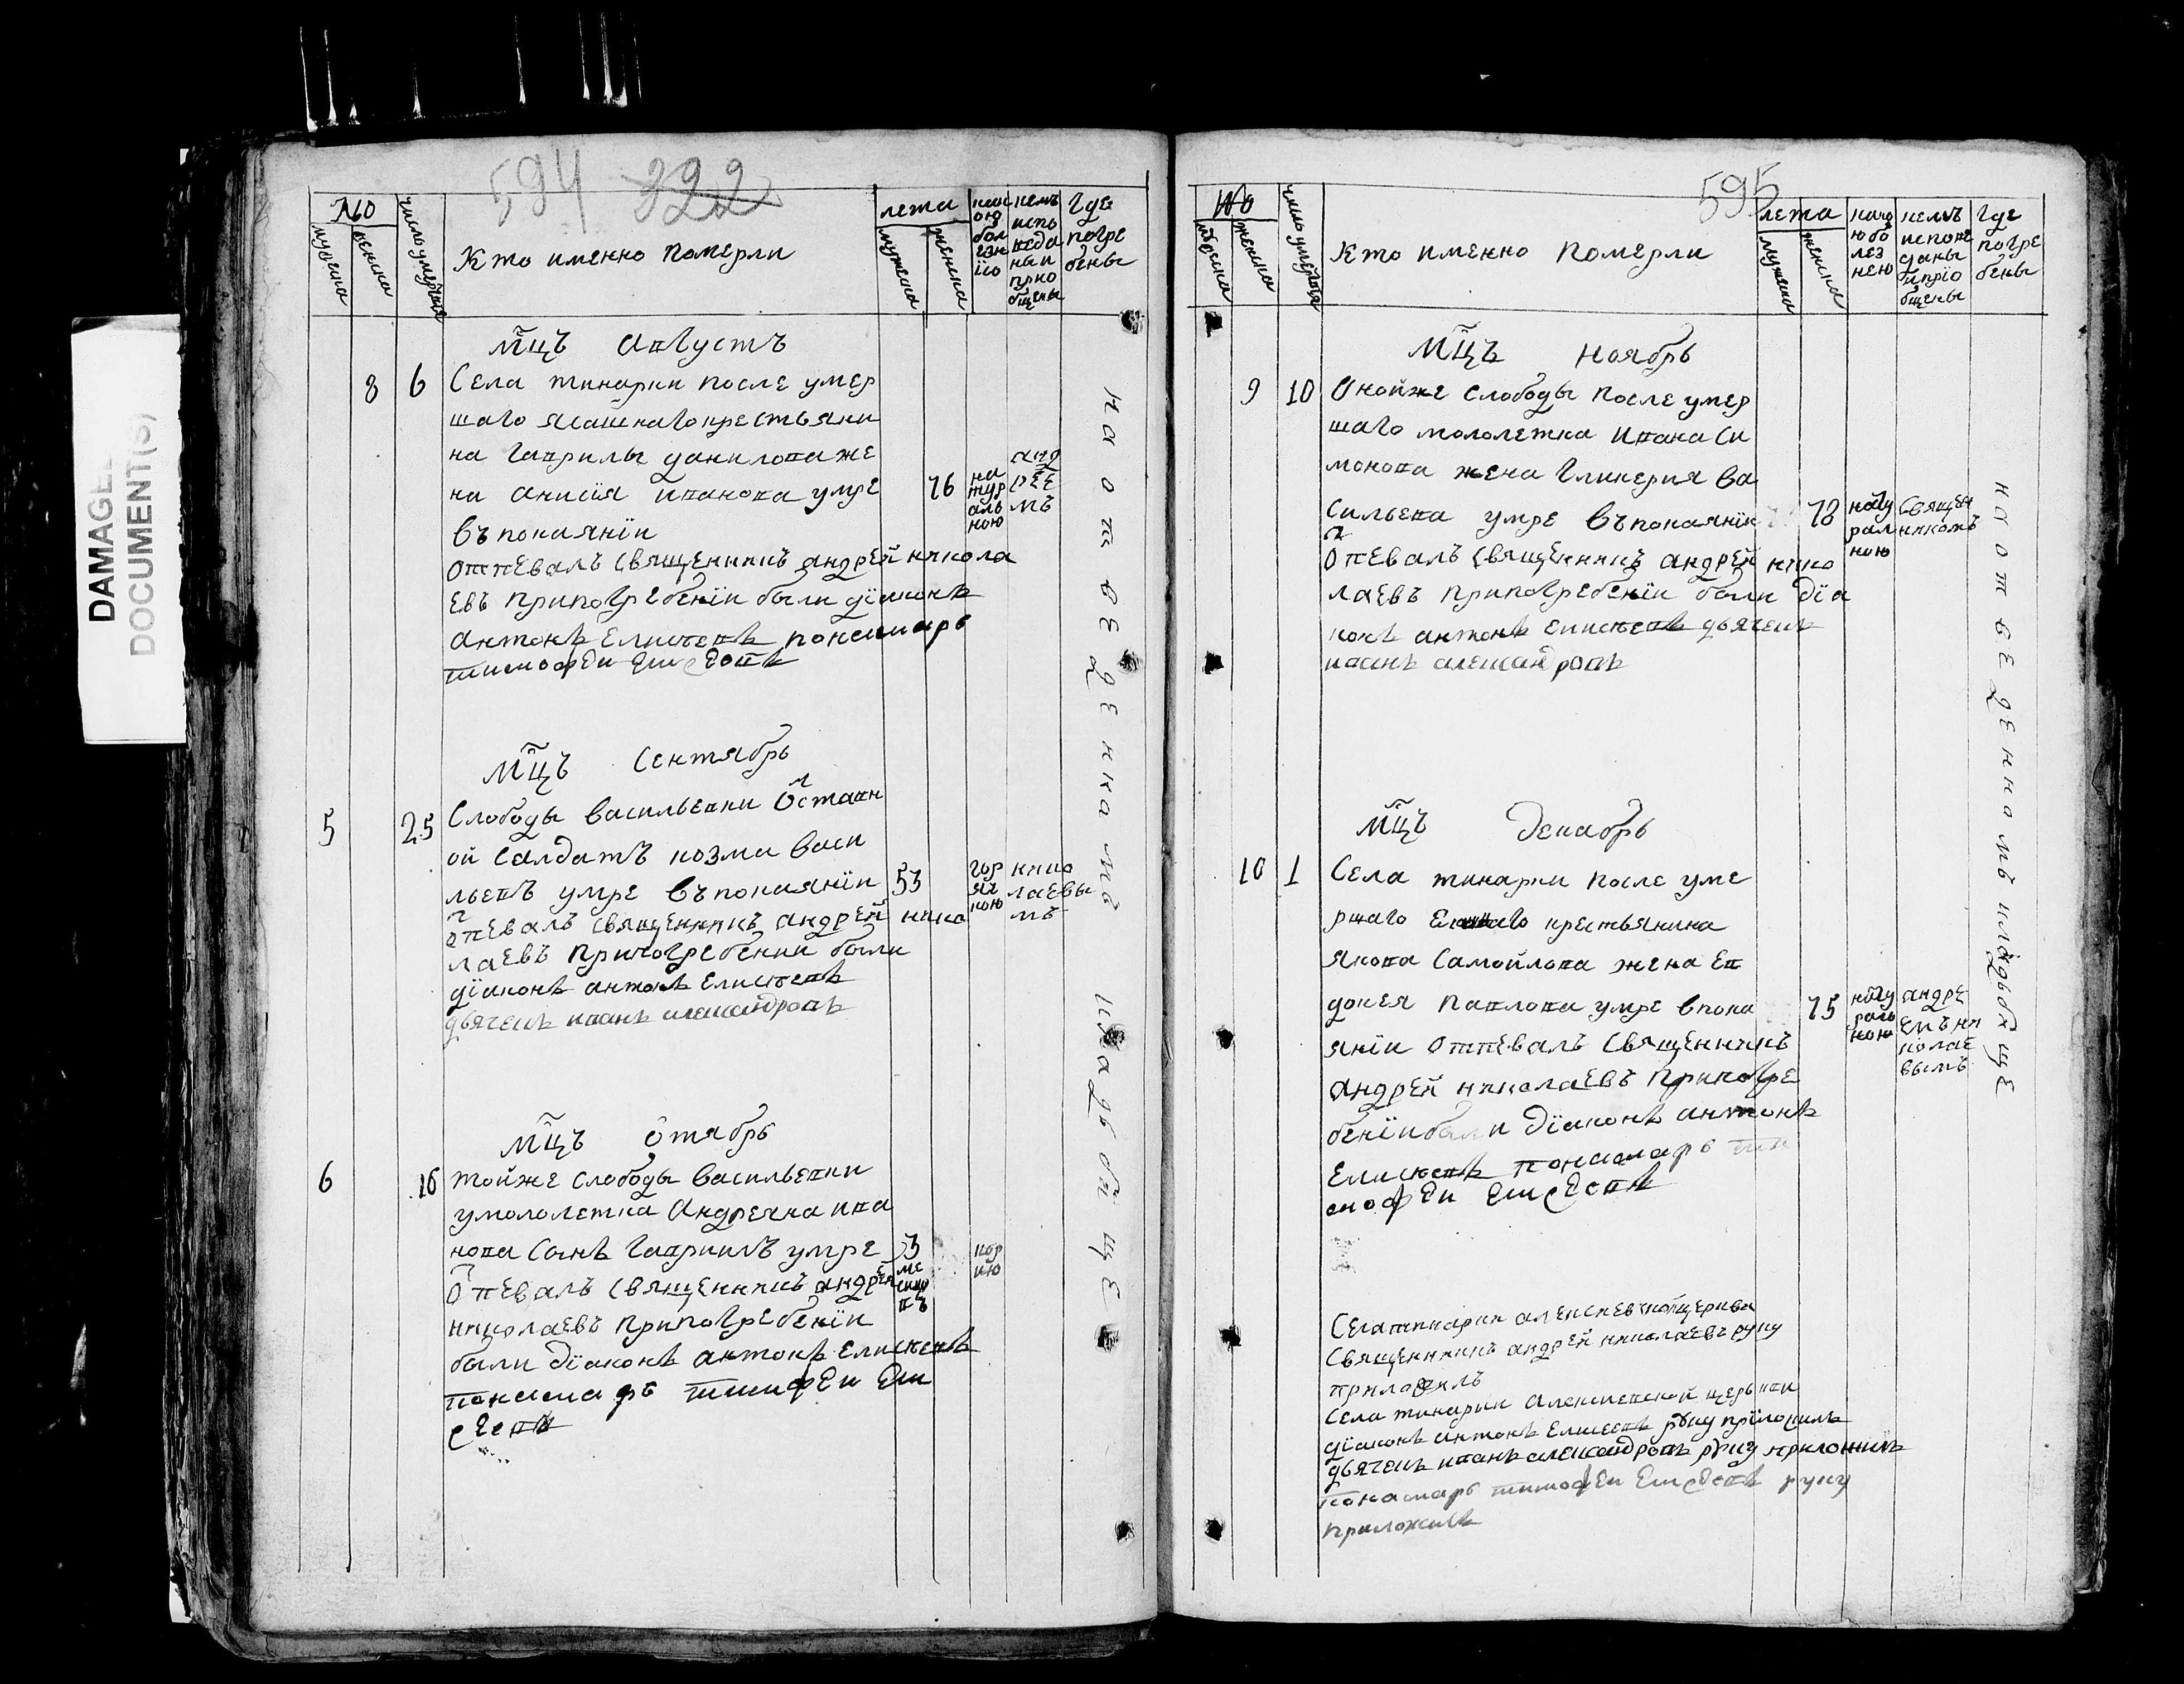 DAMAGED
DOCUMENT(S)
594 322
№
мужеска
женска
число умершихъ
Кто именно померли
лета
мужеска
женска
какою болезнiю
кемъ
испо
веда
ны и
прио
бщены
где
погре
бены
Мцъ Августъ
8 6 Села тинарки после умер
шаго ясашнаго крестьяни
на Гаврилы данилова же
на анисiя иванова умре
въ покаянiи
76
на
тур
аль
ною
анд
рее
мъ
отпевалъ священникъ андрей никола
евъ при погребенiи были дiаконъ
антонъ елисеевъ пономарь
тимофеи елисеевъ
Мцъ Сентябрь
5 25 Слободы васильевки отставн
ой салдатъ козма васи
льевъ умре въ покаянiи
53
гор
яч
кою
нико
лаевы
мъ
отпевалъ священникъ андрей нико
лаевъ при погребении были
дiаконъ антонъ елисеевъ
дьячекъ иванъ александровъ
Мцъ Октябрь
6 16 тойже слободы васильевки
у малолетка Андреяна ива
нова сынъ гавриилъ умре
3
ме
сяцо
въ
кор
ию
отпевалъ священникъ андрей
николаевъ при погребенiи
были дiаконъ антонъ елисеевъ
понамарь тимофеи ели
сеевъ
на отведенномъ
кладбище
595
№
мужеска
женска
число умершихъ
Кто именно померли
лета
мужеска
женска
како
ю бо
лез
нею
кемъ
испове
даны
и прiо
бщены
где
погре
бены
Мцъ Ноябрь
9 10 Онойже слободы после умер
шаго мололетка ивана си
монова жена гликерия ва
сильева умре въ покаянiи
78
нату
рал
ною
священ
никомъ
отпевалъ священникъ андрей нико
лаевъ при погребенiи были дiа
конъ антонъ елисеевъ дьячекъ
иванъ александровъ
Мцъ Декабрь
10 1 Села тинарки после уме
ршаго крестьянина
якова самойлова жена ев
докея павлова умре в пока
янiи отпевалъ священникъ
75
нату
раль
ною
андре
емъ ни
колае
вымъ
андрей николаевъ при погре
бенiи были дiаконъ антонъ
елисеевъ понамарь ти
мофеи елисеевъ
на отведенномъ кладбище
Села тинарки алексиевской церкви
священникъ андрей николаевъ руку
приложилъ
Села тинарки Алексиевской церькви
дiаконъ антонъ елисеевъ руку приложилъ
дьячекъ иванъ александровъ руку приложилъ
понамарь тимофеи елисеевъ руку
приложилъ